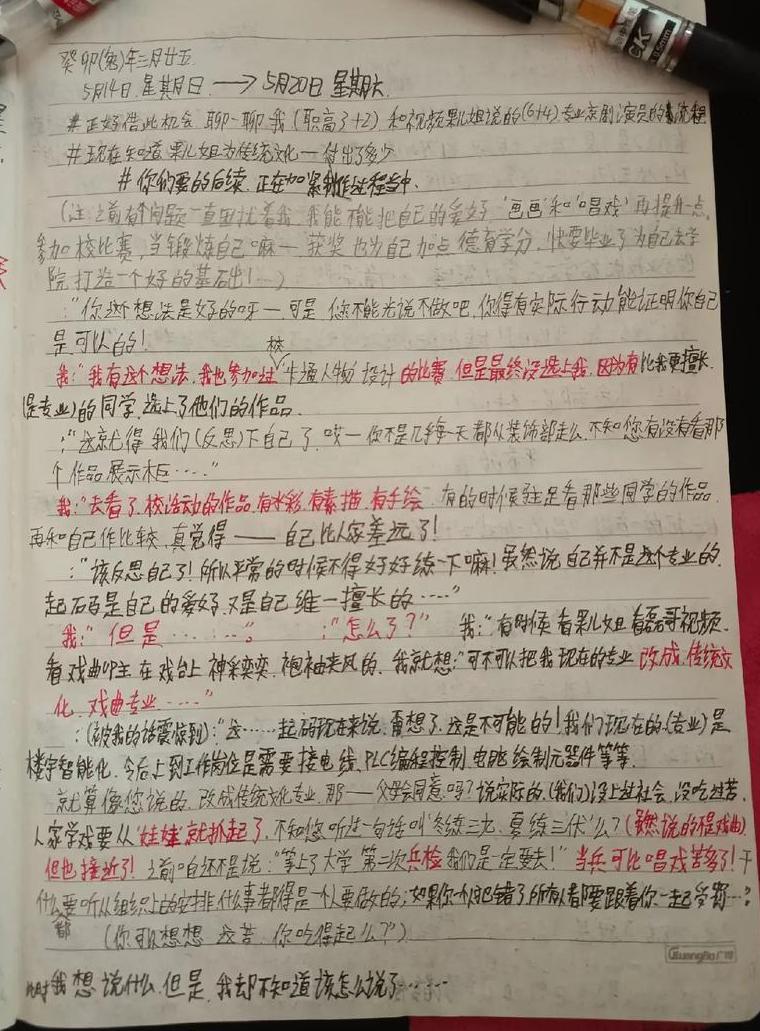 癸卯(兔)年三月廿五
5月14日.星期日.—>5月20日 星期六.
#正好借此机会 聊一聊我(职高3+2)和视频果儿姐说的(6+4)专业京剧演员的流程
#现在知道果儿姐为传统文化一付出了多少
#你们要的后续.正在加紧制作过程当中.
(注:之前有个问题一直困扰着我.我能不能把自己的爱好'画画'和'唱戏'再提升一点.
参加校比赛,当锻炼自己嘛一 获奖也为自己加点德育学分,快要毕业了为自己去学
院打造一个好的基础出!…)
:"你这个想法是好的呀一可是 您不能光说不做吧.你得有实际行动能证明你自己
是可以的!
我:"我有这个想法.我也参加过校"卡通人物"设计的比赛.但是最终没选上我.因为有比我更擅长
(是专业)的同学,选上了他们的作品.
:"这就得我们(反思)下自己了.哎一你不是几乎每一天都从装饰部走么.不知您有没有看那
个作品展示柜....."
我:"去看了.校活动的作品.有水彩.有素描.有手绘.有的时候驻足看那些同学的作品.
再和自己作比较.真觉得——自己比人家差远了!
:"该反思自己了!所以平常的时候不得好好练一下嘛!虽然说自己并不是这个专业的.
起码是自己的爱好.又是自己维一擅长的....."
我:"但是........" :"怎么了?" 我:"有时候看果儿姐看磊哥视频.
看戏曲UP主在戏台上神采奕奕.袍袖夹风的.我就想:"可不可以把我现在的专业改成.传统文
化.戏曲专业....."
:(被我的话震惊到):"这......起码现在来说.甭想了.这是不可能的!我们现在的(专业)是
楼宇智能化.今后上到工作岗位是需要接电线.PLC编程控制.电路绘制元器件等等.
就算像您说的.改成传统文化专业.那一一父母会同意吗?说实际的.(我们)没上过社会.没吃过苦.
人家学戏要从'娃娃'就抓起了.不知您听过一句话叫'冬练三九.夏练三伏'么?(虽然说的是戏曲)
但也接近了!之前咱还不是说:"等上了大学.第二次兵检我们是一定要去!"当兵可比唱戏苦多了!干
什么都要听从组织上的安排.什么事都得是一个人要做的;如果你一个人犯错了.所有人都要跟着你一起受罚...."
(你可以想想 这苦.你吃得起么?)
GuangBo广博
此时我想说什么.但是.我却不知道该怎么说了......